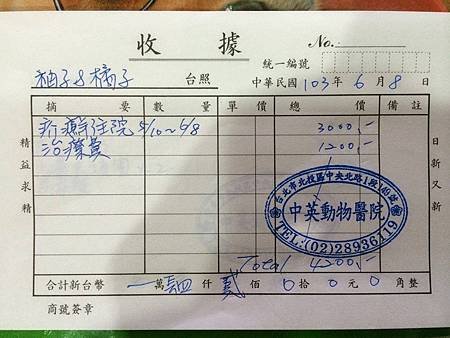 收 據 No.:
統一編號
柚子&橘子 台照 中華民國 103 年 6 月 8 日
摘 要 數 量 單 價 總 價 備 註
住院 5/10~6/8 3000,-
治療費 1200,-
精益求精
日新又新
台北市北投區中央北路1段149號
中英動物醫院
TEL:(02)28936119
Total 4200,-
合計新台幣 萬 肆 仟 貳 佰 0 拾 0 元 0 角整
商號簽章